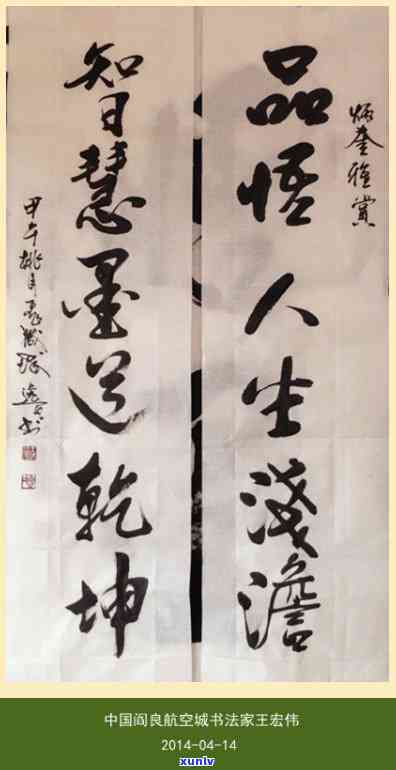 炳奎雅賞
品悟人生淺澹
智慧墨道乾坤
甲午桃月
中国阎良航空城书法家王宏伟
2014-04-14
xunlv